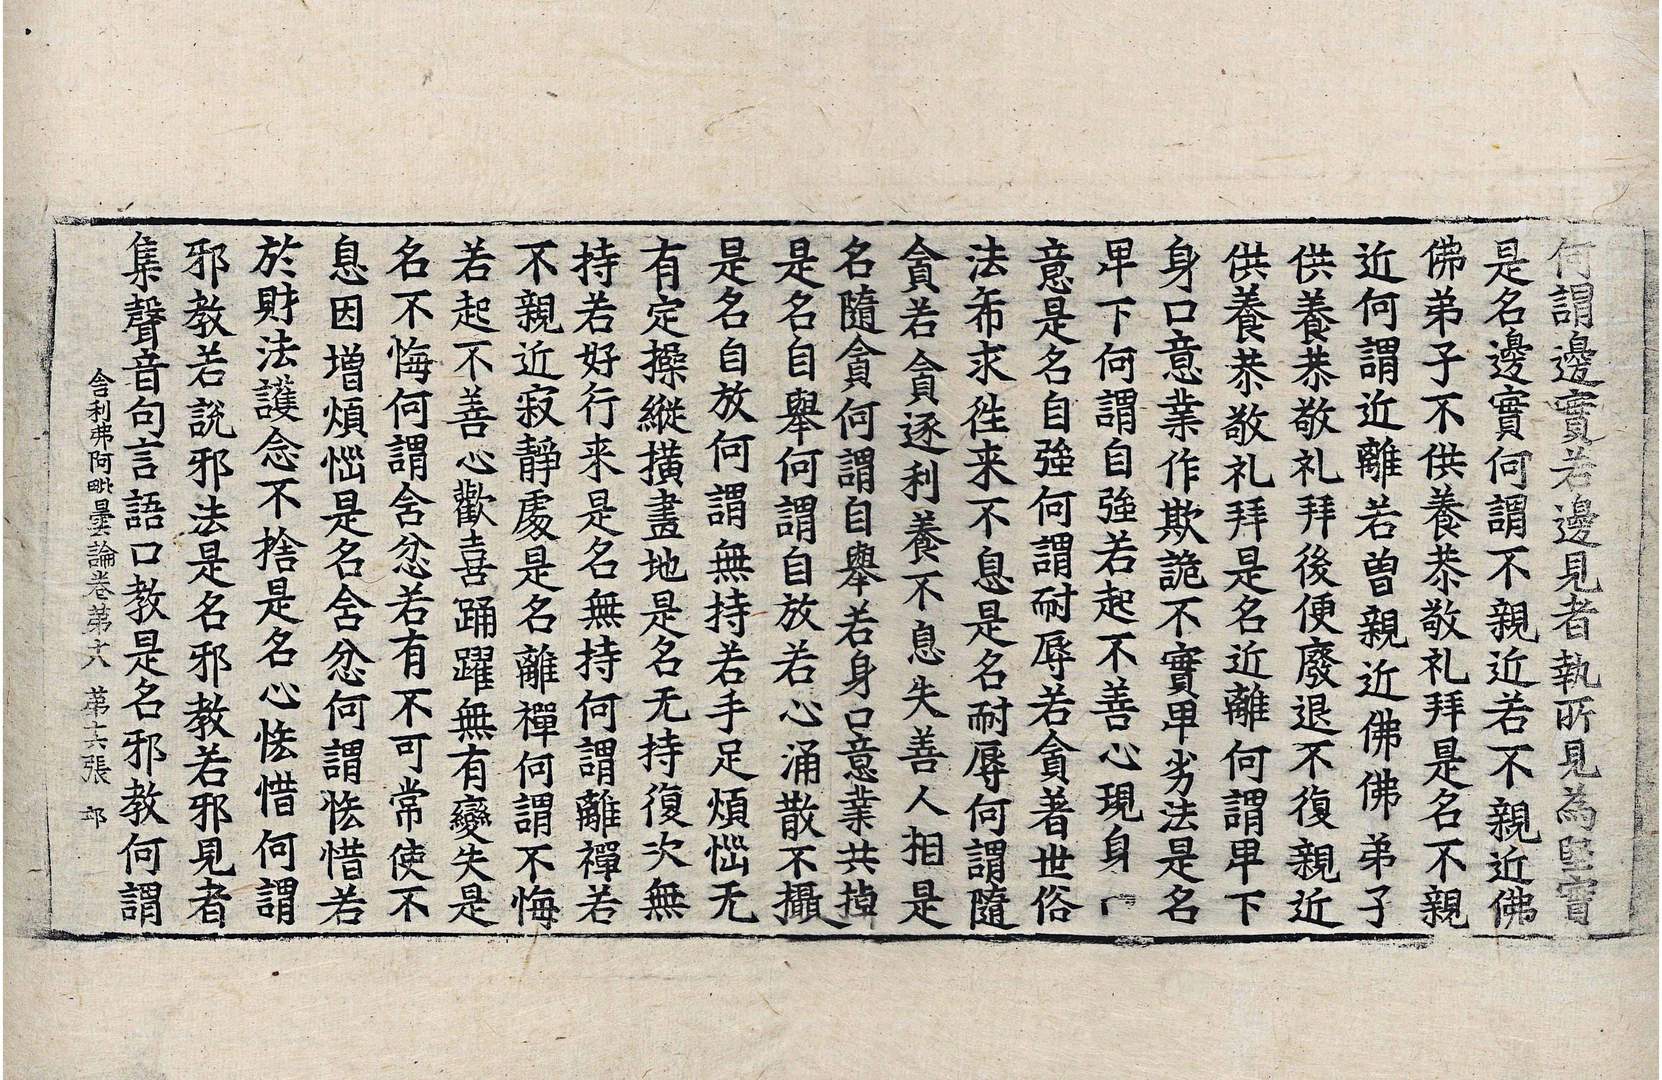 何謂邊實若邊見者執所見為堅實
是名邊實何謂不親近若不親近佛
佛弟子不供養恭敬礼拜是名不親
近何謂近離若曽親近佛佛弟子
供養恭敬礼拜後便廢退不復親近
供養恭敬礼拜是名近離何謂卑下
身口意業作欺詭不實卑劣法是名
卑下何謂自強若起不善心現身口
意是名自強何謂耐辱若貪著世俗
法布求徃来不息是名耐辱何謂隨
貪若貪逐利養不息失善人相是
名隨貪何謂自舉若身口意業共掉
是名自舉何謂自放若心涌散不攝
是名自放何謂無持若手足煩惱无
有定操縱撗畫地是名无持復次無
持若好行来是名無持何謂離禪若
不親近寂靜處是名離禪何謂不悔
若起不善心歡喜踊躍無有變失是
名不悔何謂舍忿若有不可常使不
息因增煩惱是名舍忿何謂恡惜若
於財法護念不捨是名心恡惜何謂
邪教若說邪法是名邪教若邪見者
集聲音句言語口教是名邪教何謂
舍利弗阿毗曇論卷第十八 第十六張 邙